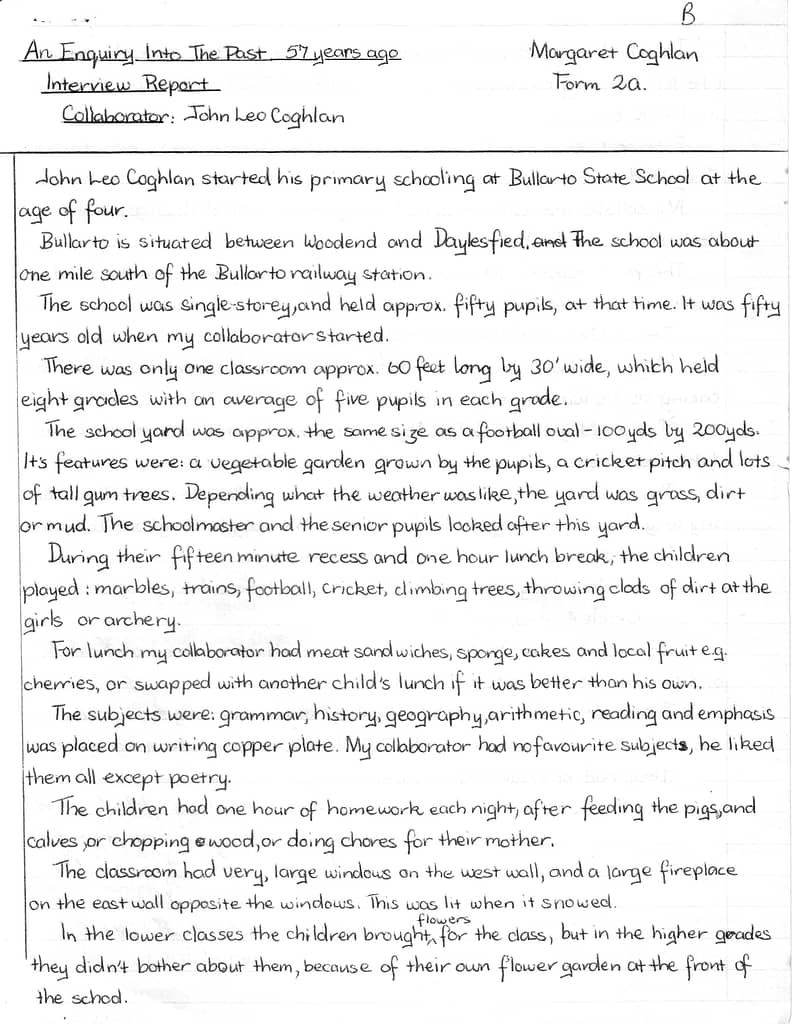 B
An Enquiry Into The Past 57 years ago
Margaret Coghlan
Interview Report
Form 2a.
Collaborator: John Leo Coghlan
John Leo Coghlan started his primary schooling at Bullarto State School at the
age of four.
Bullarto is situated between Woodend and Daylesfied, and The school was about
one mile south of the Bullarto railway station.
The school was single-storey, and held approx. fifty pupils, at that time. It was fifty
years old when my collaborator started.
There was only one classroom approx. 60 feet long by 30' wide, which held
eight grades with an average of five pupils in each grade.
The school yard was approx. the same size as a football oval - 100yds by 200yds.
It's features were: a vegetable garden grown by the pupils, a cricket pitch and lots
of tall gum trees. Depending what the weather was like, the yard was grass, dirt
or mud. The schoolmaster and the senior pupils looked after this yard.
During their fifteen minute recess and one hour lunch break, the children
played: marbles, trains, football, cricket, climbing trees, throwing clods of dirt at the
girls or archery.
For lunch my collaborator had meat sandwiches, sponge, cakes and local fruit e.g.
cherries, or swapped with another child's lunch if it was better than his own.
The subjects were: grammar, history, geography, arithmetic, reading and emphasis
was placed on writing copper plate. My collaborator had no favourite subjects, he liked
them all except poetry.
The children had one hour of homework each night, after feeding the pigs, and
calves, or chopping wood, or doing chores for their mother.
The classroom had very, large windows on the west wall, and a large fireplace
on the east wall opposite the windows. This was lit when it snowed.
In the lower classes the children brought flowers for the class, but in the higher grades
they didn't bother about them, because of their own flower garden at the front of
the school.